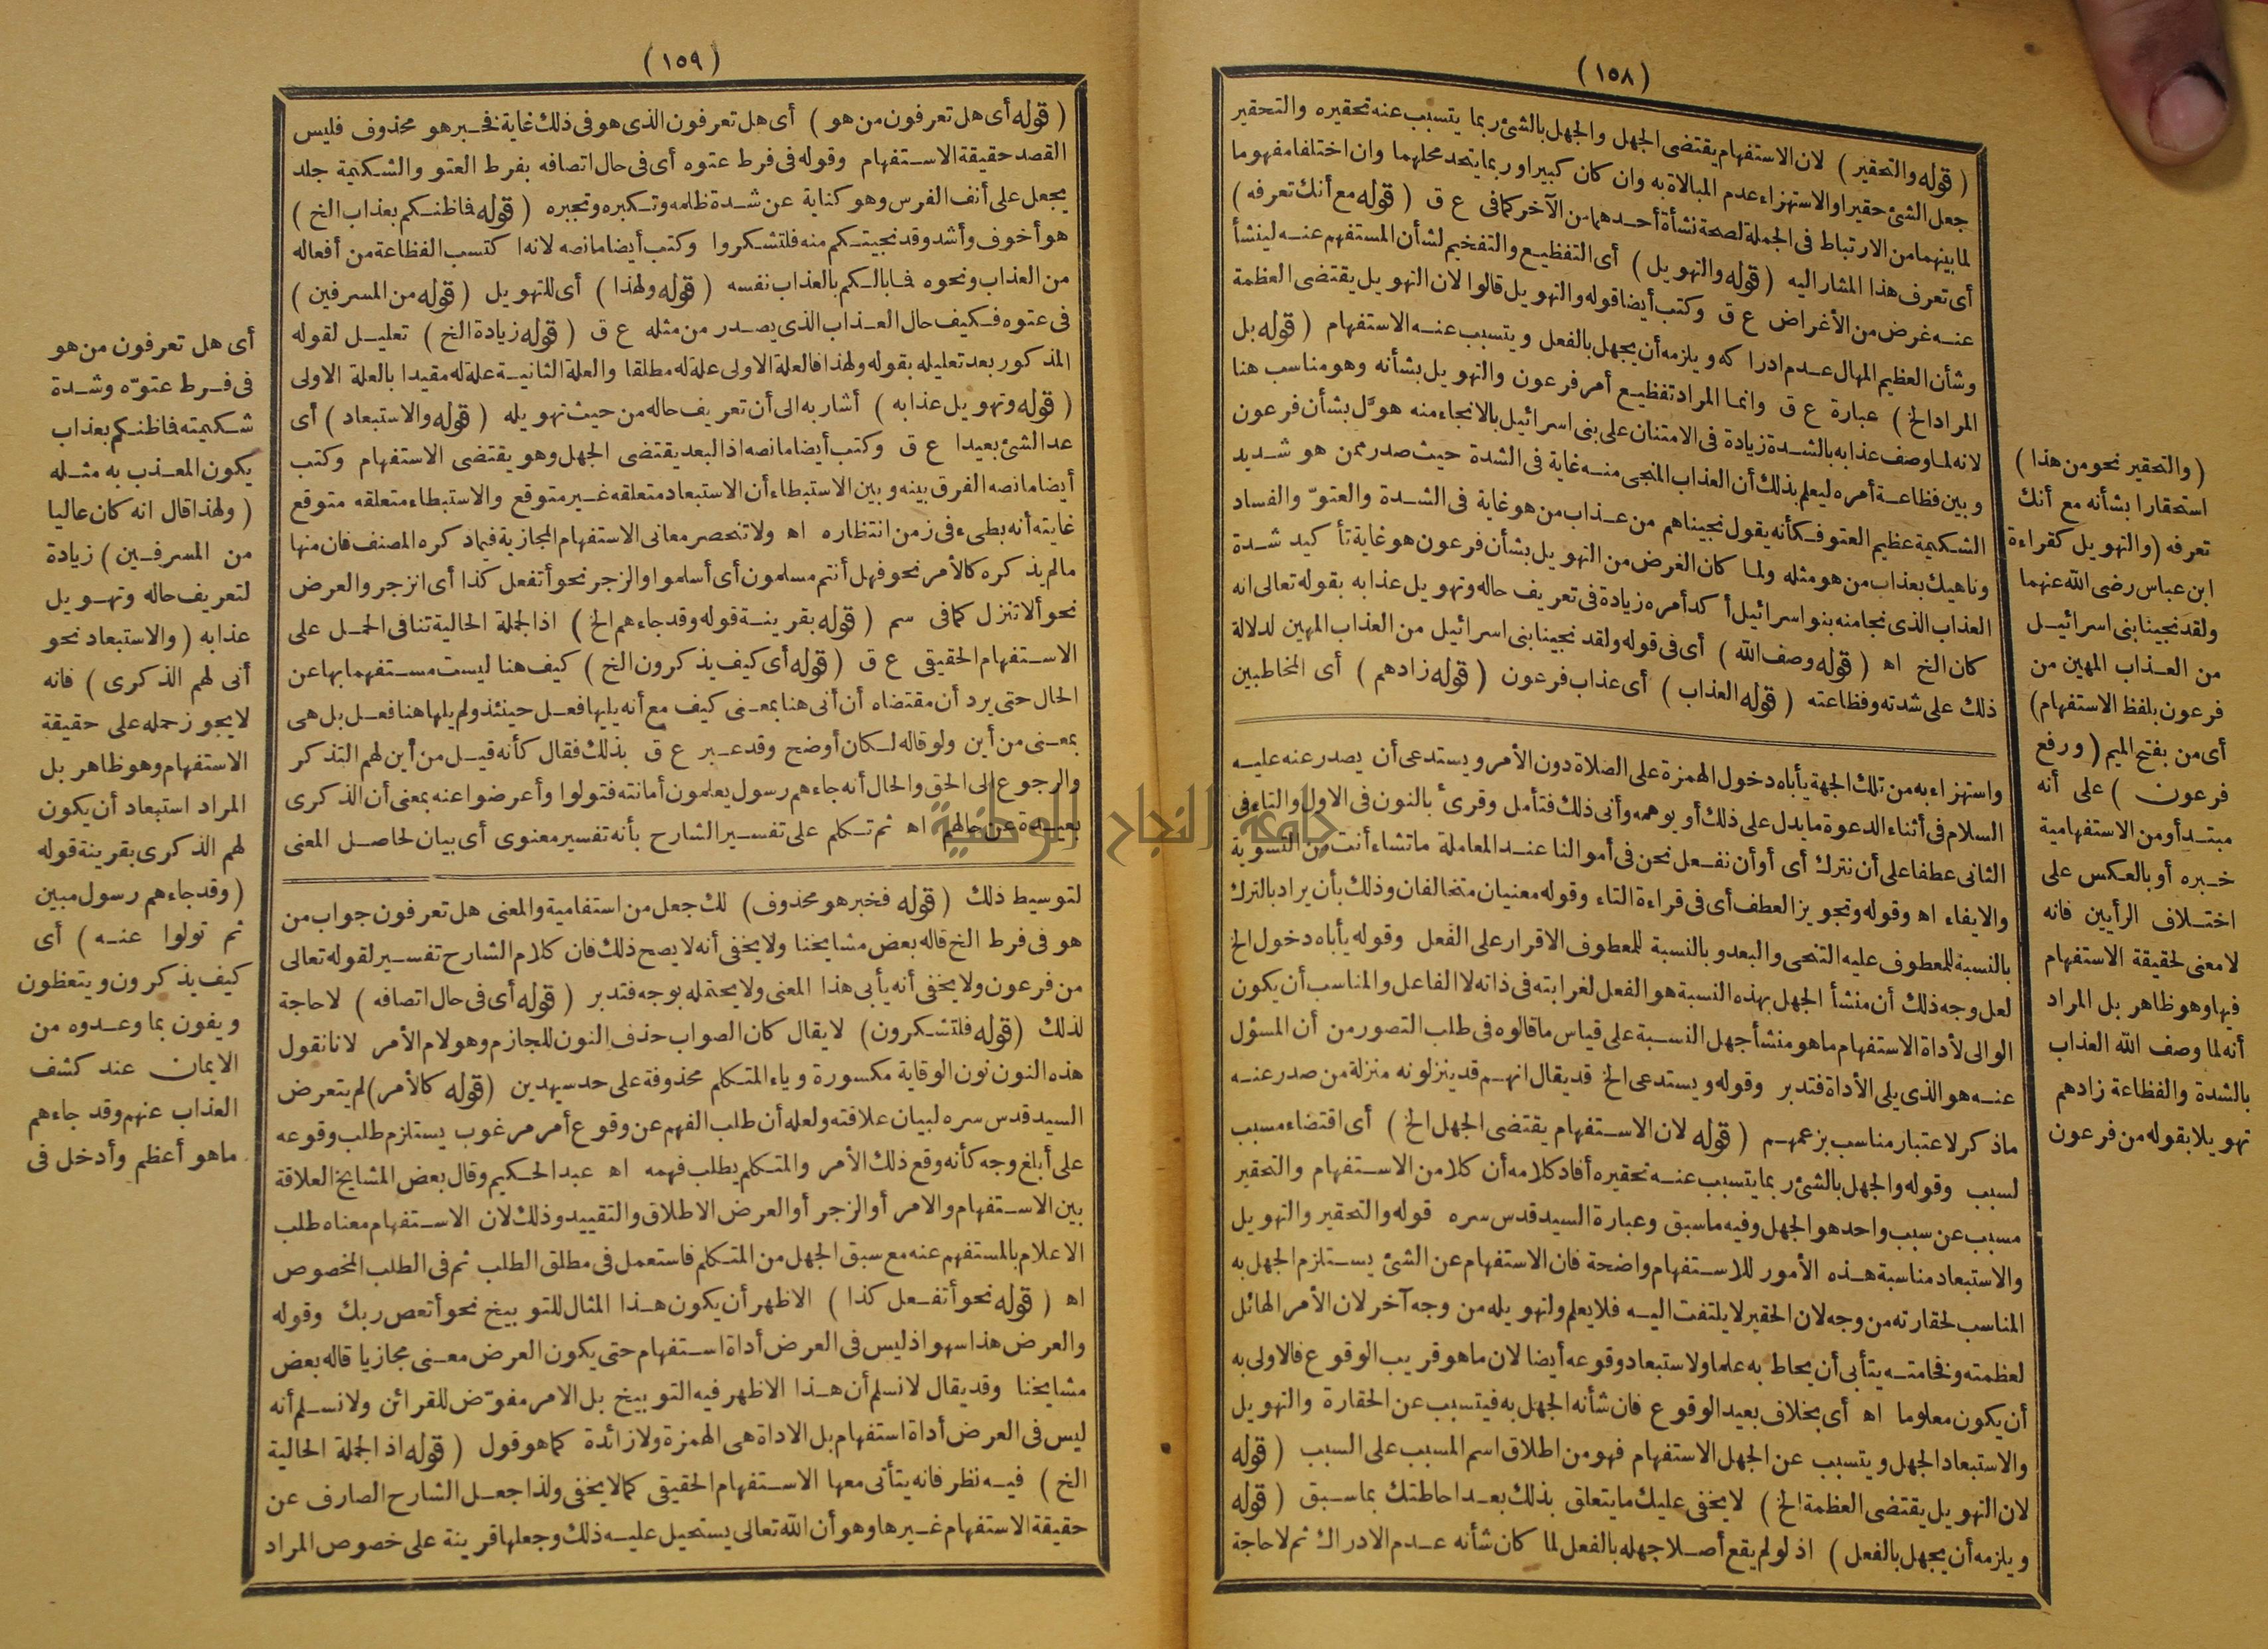 (١٥٨)
(قوله والتحقير) لان الاستفهام يقتضى الجهل والجهل بالشئ ربما يتسبب عنه تحقيره والتحقير
جعل الشئ حقيرا والاستهزاء عدم المبالاة به وان كان كبيرا وربما يتحد محلهما وان اختلفا مفهوما
لما بينهما من الارتباط فى الجملة لصحة نشأة أحدهما من الآخر كما فى ع ق (قوله مع أنك تعرفه)
أى تعرف هذا المشار اليه (قوله والتهويل) أى التفظيع والتفخيم لشأن المستفهم عنه لينشأ
عنه غرض من الأغراض ع ق وكتب أيضا قوله والتهويل قالوا لان التهويل يقتضى العظمة
وشأن العظيم المهال عدم ادراكه ويلزمه أن يجهل بالفعل ويتسبب عنه الاستفهام (قوله بل
المراد الخ) عبارة ع ق وانما المراد تفظيع أمر فرعون والتهويل بشأنه وهو مناسب هنا
لانه لما وصف عذابه بالشدة زيادة فى الامتنان على بنى اسرائيل بالانجاء منه هوّل بشأن فرعون
وبين فظاعة أمره ليعلم بذلك أن العذاب المنجى منه غاية فى الشدة حيث صدر ممن هو شديد
الشكيمة عظيم العتو فكأنه يقول نجيناهم من عذاب من هو غاية فى الشدة والعتوّ والفساد
وناهيك بعذاب من هو مثله ولما كان الغرض من التهويل بشأن فرعون هو غاية تأكيد شدة
العذاب الذى نجا منه بنو اسرائيل أكد أمره زيادة فى تعريف حاله وتهويل عذابه بقوله تعالى انه
كان الخ اه (قوله وصف الله) أى فى قوله ولقد نجينا بنى اسرائيل من العذاب المهين لدلالة
ذلك على شدته وفظاعته (قوله العذاب) أى عذاب فرعون (قوله زادهم) أى المخاطبين
واستهزاء به من تلك الجهة يأباه دخول الهمزة على الصلاة دون الأمر ويستدعى أن يصدر عنه عليه
السلام فى أثناء الدعوة ما يدل على ذلك أو يوهمه وأنى ذلك فتأمل وقرئ بالنون فى الاول والتاء فى
الثانى عطفا على أن نترك أى أو أن نفعل نحن فى أموالنا عند المعاملة ما تشاء أنت من التسوية
والايفاء اه وقوله وتجويز العطف أى فى قراءة التاء وقوله معنيان متخالفان وذلك بأن يراد بالترك
بالنسبة للمعطوف عليه التنحى والبعد وبالنسبة للمعطوف الاقرار على الفعل وقوله يأباه دخول الخ
لعل وجه ذلك أن منشأ الجهل بهذه النسبة هو الفعل لغرابته فى ذاته لا الفاعل والمناسب أن يكون
الوالى لأداة الاستفهام ما هو منشأ جهل النسبة على قياس ما قالوه فى طلب التصور من أن المسؤل
عنه هو الذى يلى الأداة فتدبر وقوله ويستدعى الخ قد يقال انهم قد ينزلونه منزلة من صدر عنه
ما ذكر لاعتبار مناسب بزعمهم (قوله لان الاستفهام يقتضى الجهل الخ) أى اقتضاء مسبب
لسبب وقوله والجهل بالشئ ربما يتسبب عنه تحقيره أفاد كلامه أن كلا من الاستفهام والتحقير
مسبب عن سبب واحد هو الجهل وفيه ما سبق وعبارة السيد قدس سره قوله والتحقير والتهويل
والاستبعاد مناسبة هذه الأمور للاستفهام واضحة فان الاستفهام عن الشئ يستلزم الجهل به
المناسب لحقارته من وجه لان الحقير لا يلتفت اليه فلا يعلم ولتهويله من وجه آخر لان الأمر الهائل
لعظمته وفخامته يتأبى أن يحاط به علما ولاستبعاد وقوعه أيضا لان ما هو قريب الوقوع فالاولى به
أن يكون معلوما اه أى بخلاف بعيد الوقوع فان شأنه الجهل به فيتسبب عن الحقارة والتهويل
والاستبعاد الجهل ويتسبب عن الجهل الاستفهام فهو من اطلاق اسم المسبب على السبب (قوله
لان التهويل يقتضى العظمة الخ) لا يخفى عليك ما يتعلق بذلك بعد احاطتك بما سبق (قوله
ويلزمه أن يجهل بالفعل) اذ لو لم يقع أصلا جهله بالفعل لما كان شأنه عدم الادراك ثم لا حاجة
(والتحقير نحو من هذا)
استحقارا بشأنه مع أنك
تعرفه (والتهويل كقراءة
ابن عباس رضى الله عنهما
ولقد نجينا بنى اسرائيل
من العذاب المهين من
فرعون بلفظ الاستفهام)
أى من بفتح الميم (ورفع
فرعون) على أنه
مبتدأ ومن الاستفهامية
خبره أو بالعكس على
اختلاف الرأيين فانه
لا معنى لحقيقة الاستفهام
فيها وهو ظاهر بل المراد
أنه لما وصف الله العذاب
بالشدة والفظاعة زادهم
تهويلا بقوله من فرعون
(١٥٩)
(قوله أى هل تعرفون من هو) أى هل تعرفون الذى هو فى ذلك غاية فخبر هو محذوف فليس
القصد حقيقة الاستفهام وقوله فى فرط عتوه أى فى حال اتصافه بفرط العتو والشكيمة جلد
يجعل على أنف الفرس وهو كناية عن شدة ظلمه وتكبره وتجبره (قوله فما ظنكم بعذاب الخ)
هو أخوف وأشد وقد نجيتكم منه فلتشكروا وكتب أيضا ما نصه لانه اكتسب الفظاعة من أفعاله
من العذاب ونحوه فما بالكم بالعذاب نفسه (قوله ولهذا) أى للتهويل (قوله من المسرفين)
فى عتوه فكيف حال العذاب الذى يصدر من مثله ع ق (قوله زيادة الخ) تعليل لقوله
المذكور بعد تعليله بقوله ولهذا فالعلة الاولى علة له مطلقا والعلة الثانية علة له مقيدا بالعلة الاولى
(قوله وتهويل عذابه) أشار به الى أن تعريف حاله من حيث تهويله (قوله والاستبعاد) أى
عد الشئ بعيدا ع ق وكتب أيضا ما نصه اذ البعد يقتضى الجهل وهو يقتضى الاستفهام وكتب
أيضا ما نصه الفرق بينه وبين الاستبطاء أن الاستبعاد متعلقه غير متوقع والاستبطاء متعلقه متوقع
غايته أنه بطىء فى زمن انتظاره اه ولا تنحصر معانى الاستفهام المجازية فيما ذكره المصنف فان منها
ما لم يذكره كالأمر نحو فهل أنتم مسلمون أى أسلموا والزجر نحو أتفعل كذا أى انزجر والعرض
نحو ألا تنزل كما فى سم (قوله بقرينة قوله وقد جاءهم الخ) اذ الجملة الحالية تنافى الحمل على
الاستفهام الحقيقى ع ق (قوله أى كيف يذكرون الخ) كيف هنا ليست مستفهما بها عن
الحال حتى يرد أن مقتضاه أن أنى هنا بمعنى كيف مع أنه يليها فعل حينئذ ولم يلها هنا فعل بل هى
بمعنى من أين ولو قاله لكان أوضح وقد عبر ع ق بذلك فقال كأنه قيل من أين لهم التذكر
والرجوع الى الحق والحال أنه جاءهم رسول يعلمون أمانته فتولوا وأعرضوا عنه بمعنى أن الذكرى
بعيدة عن حالهم اه ثم تكلم على تفسير الشارح بأنه تفسير معنوى أى بيان لحاصل المعنى
لتوسيط ذلك (قوله فخبر هو محذوف) لك جعل من استفهامية والمعنى هل تعرفون جواب من
هو فى فرط الخ قاله بعض مشايخنا ولا يخفى أنه لا يصح ذلك فان كلام الشارح تفسير لقوله تعالى
من فرعون ولا يخفى أنه يأبى هذا المعنى ولا يحتمله بوجه فتدبر (قوله أى فى حال اتصافه) لا حاجة
لذلك (قوله فلتشكرون) لا يقال كان الصواب حذف النون للجازم وهو لام الأمر لانا نقول
هذه النون نون الوقاية مكسورة وياء المتكلم محذوفة على حد سيهدين (قوله كالأمر) لم يتعرض
السيد قدس سره لبيان علاقته ولعله أن طلب الفهم عن وقوع أمر مرغوب يستلزم طلب وقوعه
على أبلغ وجه كأنه وقع ذلك الأمر والمتكلم يطلب فهمه اه عبد الحكيم وقال بعض المشايخ العلاقة
بين الاستفهام والامر أو الزجر أو العرض الاطلاق والتقييد وذلك لان الاستفهام معناه طلب
الاعلام بالمستفهم عنه مع سبق الجهل من المتكلم فاستعمل فى مطلق الطلب ثم فى الطلب المخصوص
اه (قوله نحو أتفعل كذا) الاظهر أن يكون هذا المثال للتوبيخ نحو أتعص ربك وقوله
والعرض هذا سهو اذ ليس فى العرض أداة استفهام حتى يكون العرض معنى مجازيا قاله بعض
مشايخنا وقد يقال لا نسلم أن هذا الاظهر فيه التوبيخ بل الامر مفوّض للقرائن ولا نسلم أنه
ليس فى العرض أداة استفهام بل الاداة هى الهمزة ولا زائدة كما هو قول (قوله اذ الجملة الحالية
الخ) فيه نظر فانه يتأتى معها الاستفهام الحقيقى كما لا يخفى ولذا جعل الشارح الصارف عن
حقيقة الاستفهام غيرها وهو أن الله تعالى يستحيل عليه ذلك وجعلها قرينة على خصوص المراد
أى هل تعرفون من هو
فى فرط عتوّه وشدة
شكيمته فما ظنكم بعذاب
يكون المعذب به مثله
(ولهذا قال انه كان عاليا
من المسرفين) زيادة
لتعريف حاله وتهويل
عذابه (والاستبعاد نحو
أنى لهم الذكرى) فانه
لا يجوز حمله على حقيقة
الاستفهام وهو ظاهر بل
المراد استبعاد أن يكون
لهم الذكرى بقرينة قوله
(وقد جاءهم رسول مبين
ثم تولوا عنه) أى
كيف يذكرون ويتعظون
ويفون بما وعدوه من
الايمان عند كشف
العذاب عنهم وقد جاءهم
ما هو أعظم وأدخل فى
جامعة النجاح الوطنية